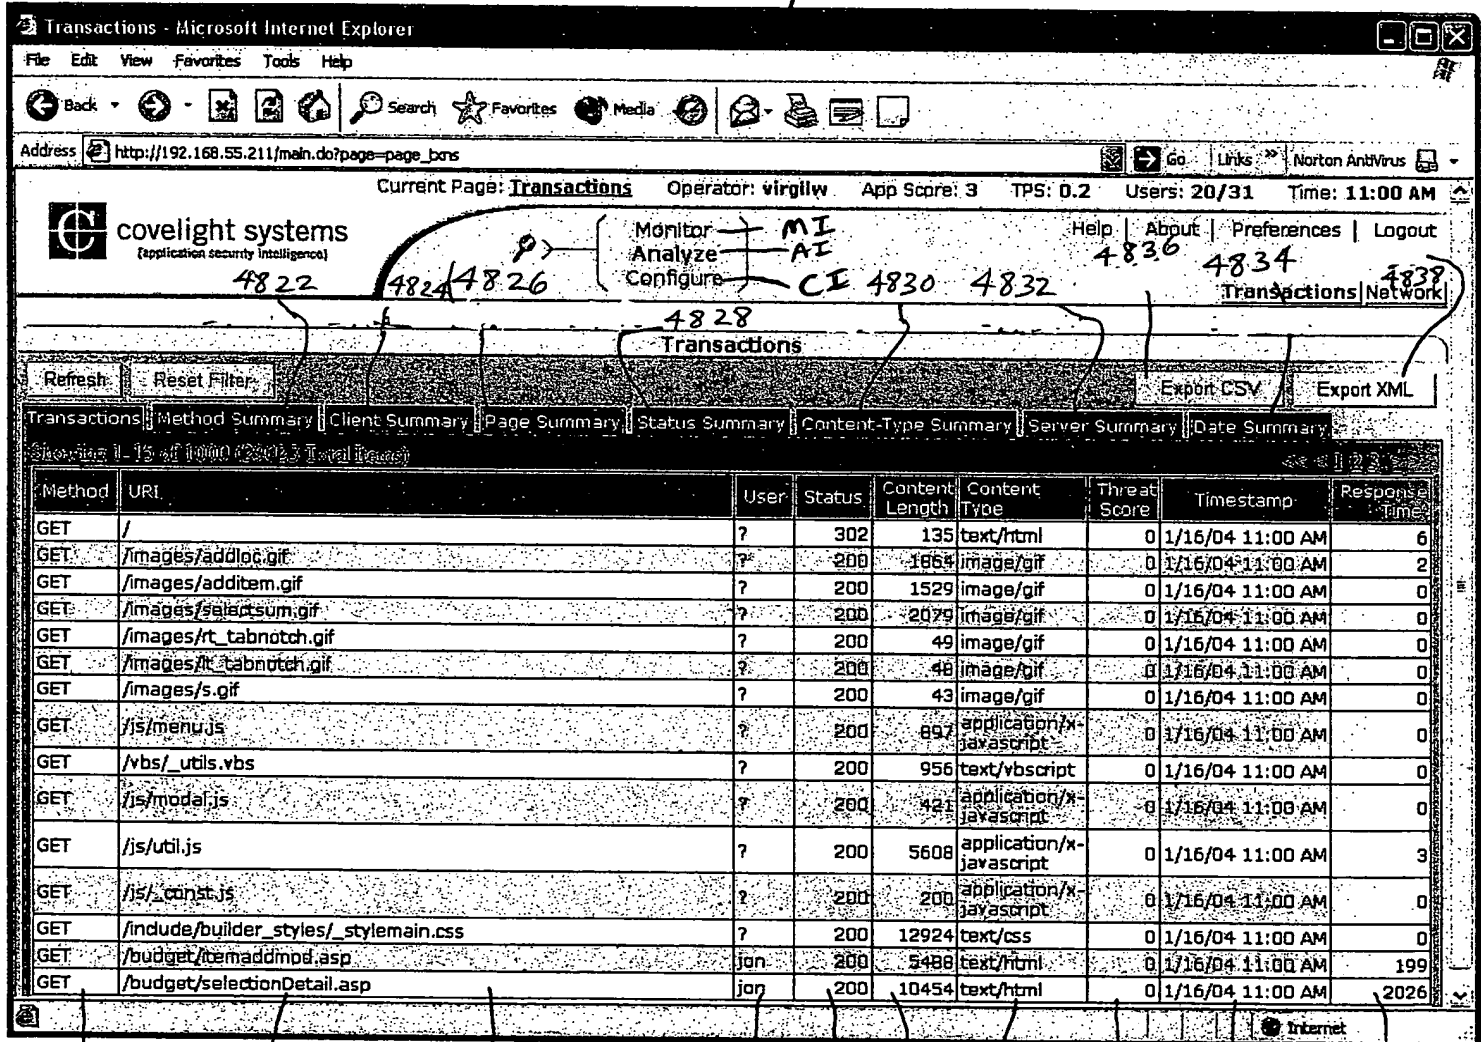 Transactions - Microsoft Internet Explorer
File Edit View Favorites Tools Help
Back Search Favorites Media
Address http://192.168.55.211/main.do?page=page_txns Go Links » Norton AntiVirus
Current Page: Transactions Operator: virgilw App Score: 3 TPS: 0.2 Users: 20/31 Time: 11:00 AM
covelight systems
[application security intelligence]
Monitor MI
Analyze AI
Configure CI
Help | About | Preferences | Logout
4822 4824 4826 4830 4832 4836 4834 4838
Transactions | Network
4828
Transactions
Refresh Reset Filter Export CSV Export XML
Transactions Method Summary Client Summary Page Summary Status Summary Content-Type Summary Server Summary Date Summary
Showing 1-15 of 1000 Total Items) 1 2 3
Method URI User Status Content Length Content Type Threat Score Timestamp Response Time
GET / ? 302 135 text/html 0 1/16/04 11:00 AM 6
GET /images/addloc.gif ? 200 1864 image/gif 0 1/16/04 11:00 AM 2
GET /images/additem.gif ? 200 1529 image/gif 0 1/16/04 11:00 AM 0
GET /images/selectsum.gif ? 200 2079 image/gif 0 1/16/04 11:00 AM 0
GET /images/rt_tabnotch.gif ? 200 49 image/gif 0 1/16/04 11:00 AM 0
GET /images/lt_tabnotch.gif ? 200 48 image/gif 0 1/16/04 11:00 AM 0
GET /images/s.gif ? 200 43 image/gif 0 1/16/04 11:00 AM 0
GET /js/menu.js ? 200 897 application/x-javascript 0 1/16/04 11:00 AM 0
GET /vbs/_utils.vbs ? 200 956 text/vbscript 0 1/16/04 11:00 AM 0
GET /js/modal.js ? 200 421 application/x-javascript 0 1/16/04 11:00 AM 0
GET /js/util.js ? 200 5608 application/x-javascript 0 1/16/04 11:00 AM 3
GET /js/_const.js ? 200 200 application/x-javascript 0 1/16/04 11:00 AM 0
GET /include/builder_styles/_stylemain.css ? 200 12924 text/css 0 1/16/04 11:00 AM 0
GET /budget/itemaddmod.asp jon 200 5488 text/html 0 1/16/04 11:00 AM 199
GET /budget/selectionDetail.asp jon 200 10454 text/html 0 1/16/04 11:00 AM 2026
Internet